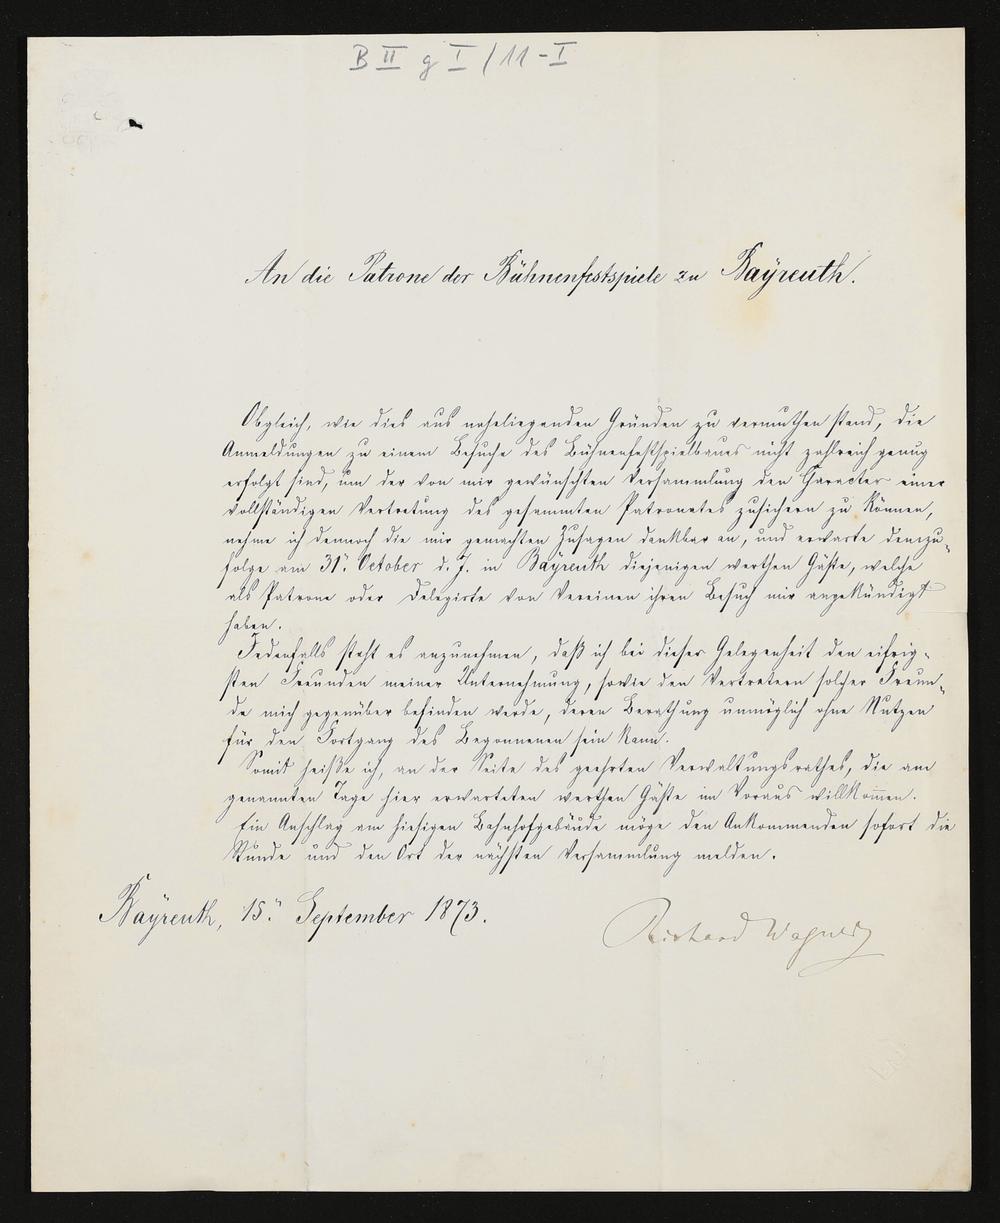 B II g I / 11 - I
An die Patrone der Bühnenfestspiele zu Bayreuth.
Obgleich, wie dies aus naheliegenden Gründen zu vermuthen stand, die
Anmeldungen zu einem Besuche des Bühnenfestspielbaues nicht zahlreich genug
erfolgt sind, um der von mir gewünschten Versammlung den Caracter einer
vollständigen Vertretung des gesammten Patronates zusichern zu können,
nehme ich dennoch die mir gemachten Zusagen dankbar an, und erwarte demzu-
folge am 31. October d. J. in Bayreuth diejenigen werthen Gäste, welche
als Patrone oder Delegirte von Vereinen ihren Besuch mir angekündigt
haben.
Jedenfalls steht es anzunehmen, daß ich bei dieser Gelegenheit den eifrig-
sten Freunden meiner Unternehmung, sowie den Vertretern solcher Freun-
de mich gegenüber befinden werde, deren Berathung unmöglich ohne Nutzen
für den Fortgang des Begonnenen sein kann.
Somit heiße ich, an der Seite des geehrten Verwaltungsrathes, die am
genannten Tage hier erwarteten werthen Gäste im Voraus willkom̅en.
Ein Anschlag am hiesigen Bahnhofgebäude möge den Ankommenden sofort die
Stunde und den Ort der nächsten Versammlung melden.
Bayreuth, 15. September 1873.
Richard Wagner